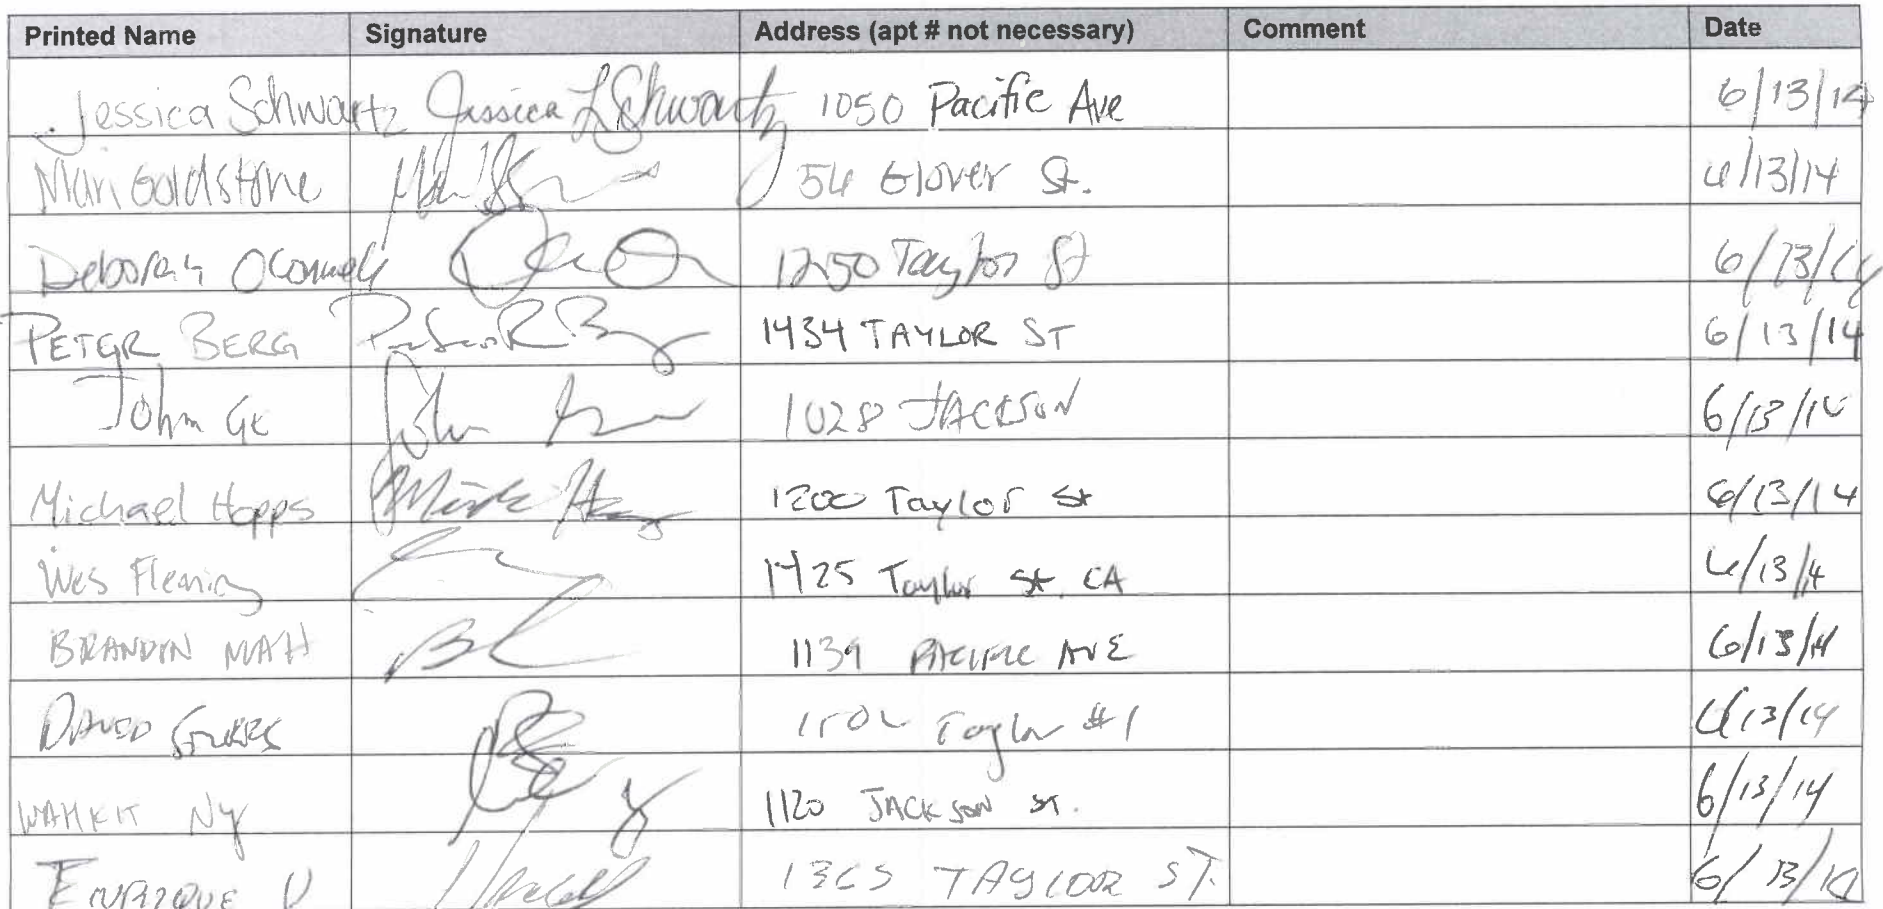 Printed Name Signature Address (apt # not necessary) Comment Date
Jessica Schwartz Jessica L Schwartz 1050 Pacific Ave 6/13/14
Mari Goldstone 54 Glover St. 6/13/14
Deborah OConnell 1250 Taylor St 6/13/14
PETER BERG 1434 TAYLOR ST 6/13/14
John Ge John 1028 JACKSON 6/13/14
Michael Hopps 1200 Taylor St 6/13/14
Wes Fleming 1425 Taylor St. CA 6/13/14
BRANDON MAH 1139 PACIFIC AVE 6/13/14
DAVID Taylor #1 6/13/14
WAHKIT Ny 1120 JACKSON ST. 6/13/14
ENRIQUE V 1365 TAYLOR ST. 6/13/14